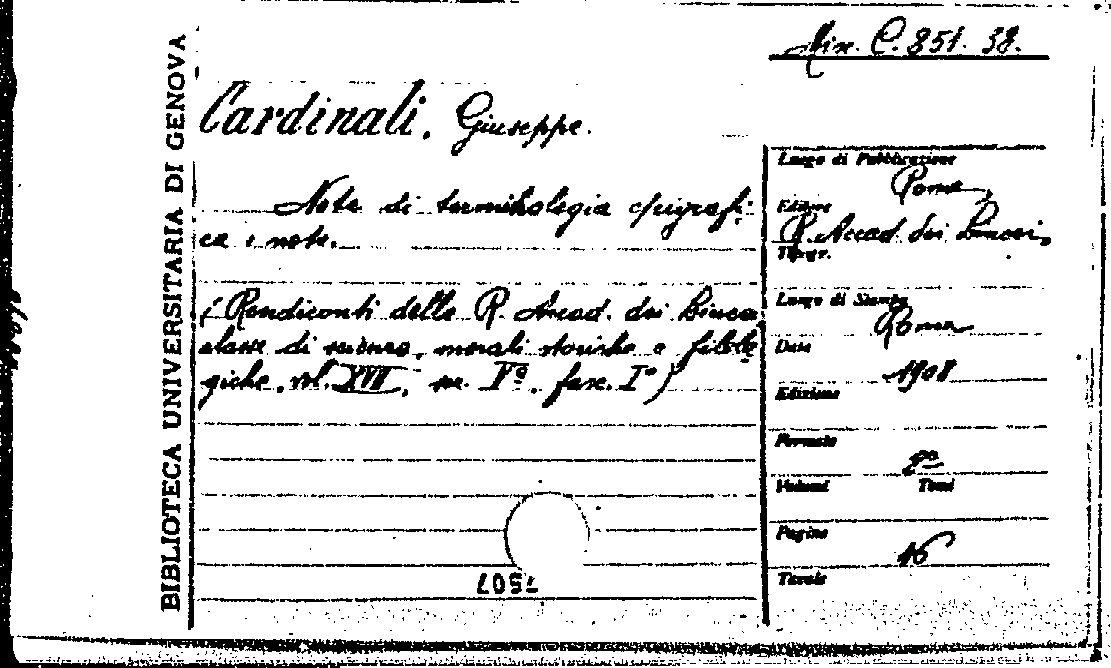 BIBLIOTECA UNIVERSITARIA DI GENOVA
Min. C. 851. 38.
Cardinali, Giuseppe.
Note di terminologia epigrafi-
ca : note.
( Rendiconti della R. Accad. dei Lincei
classe di scienze, morali storiche e filolo
giche, vol. XVII, se. Vª, fasc. I° )
7507
Luogo di Pubblicazione
Roma,
Editore
R. Accad. dei Lincei,
Tipogr.
Luogo di Stampa
Roma
Data
1908
Edizione
Formato
8°
Volumi Tomi
Pagine
16
Tavole